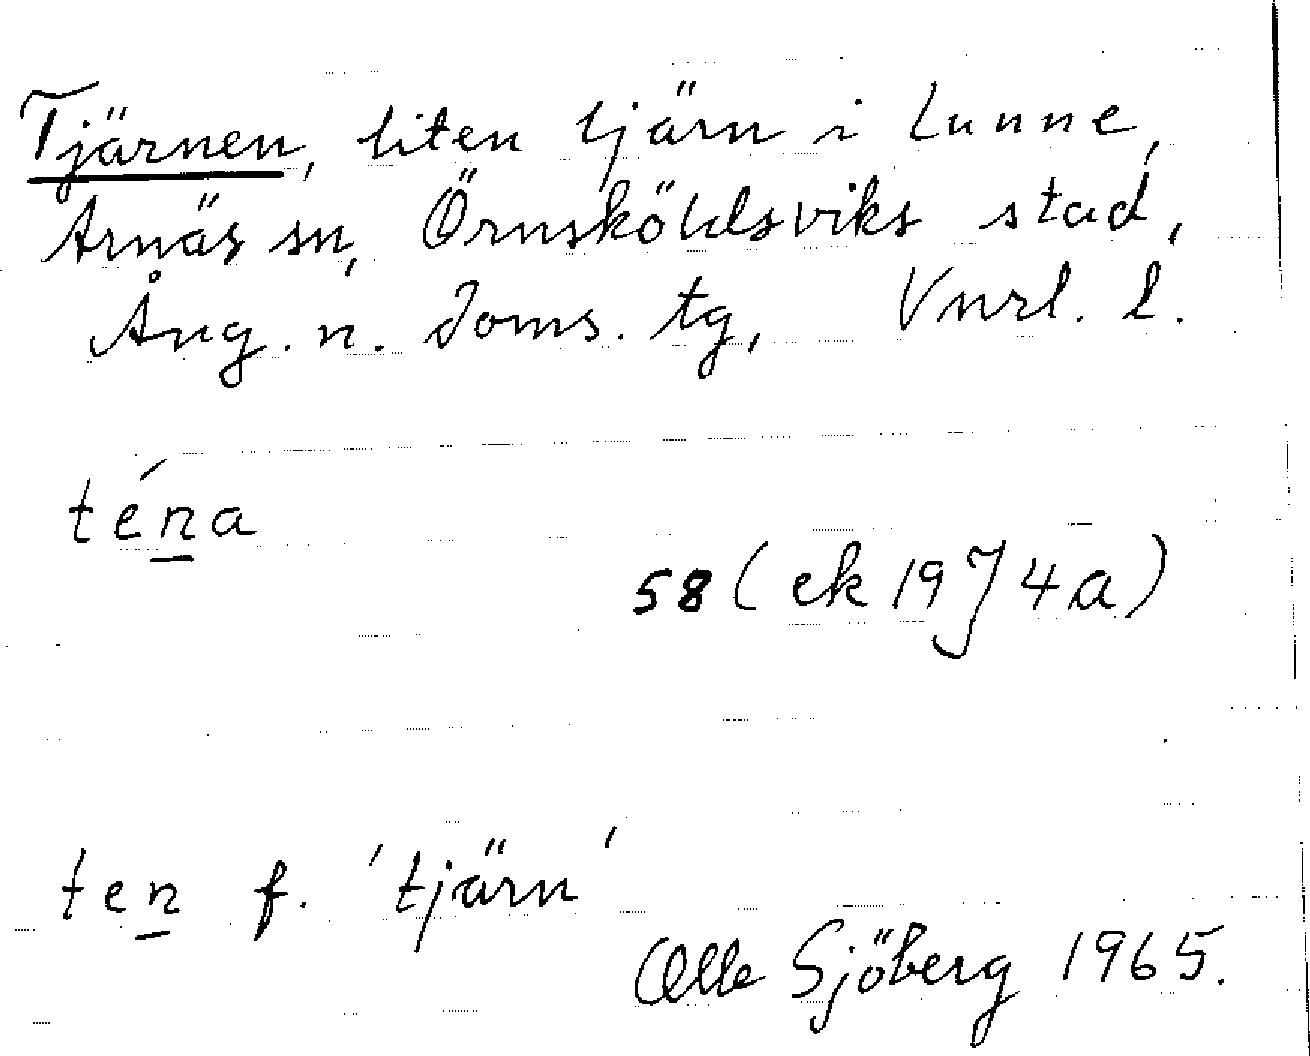 Tjärnen, liten tjärn i Lunne,
Arnäs sn, Örnsköldsviks stad,
Ång. n. doms. tg, Vnrl. l.
téna
58 (ek 19J4a)
ten f. 'tjärn'
Olle Sjöberg 1965.